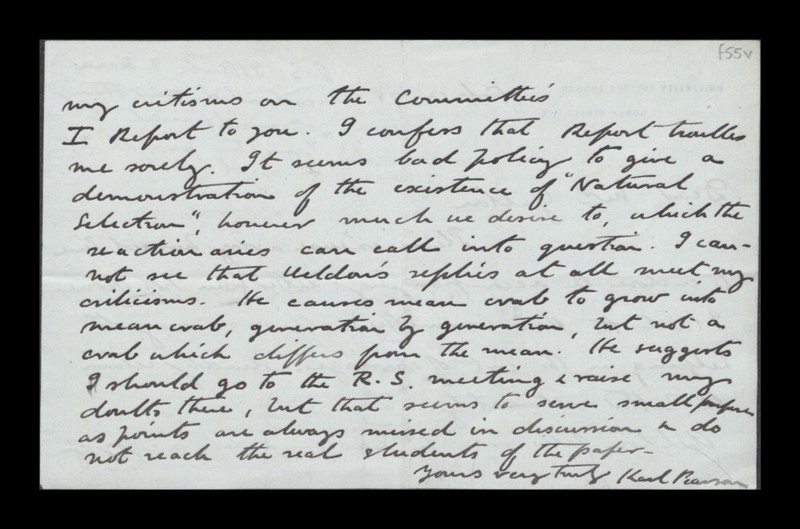 f55v
my critisms on the Committee's
I Report to you. I confess that Report troubles
me sorely. It seems bad policy to give a
demonstration of the existence of "Natural
Selection", however much we desire to, which the
reactionaries can call into question. I can-
not see that Weldon's replies at all meet my
criticisms. He causes mean crab to grow into
mean crab, generation by generation, but not a
crab which differs from the mean. He suggests
I should go to the R. S. meeting & raise my
doubts there, but that seems to serve small purpose
as points are always missed in discussion & do
not reach the real students of the paper.
Yours very truly Karl Pearson